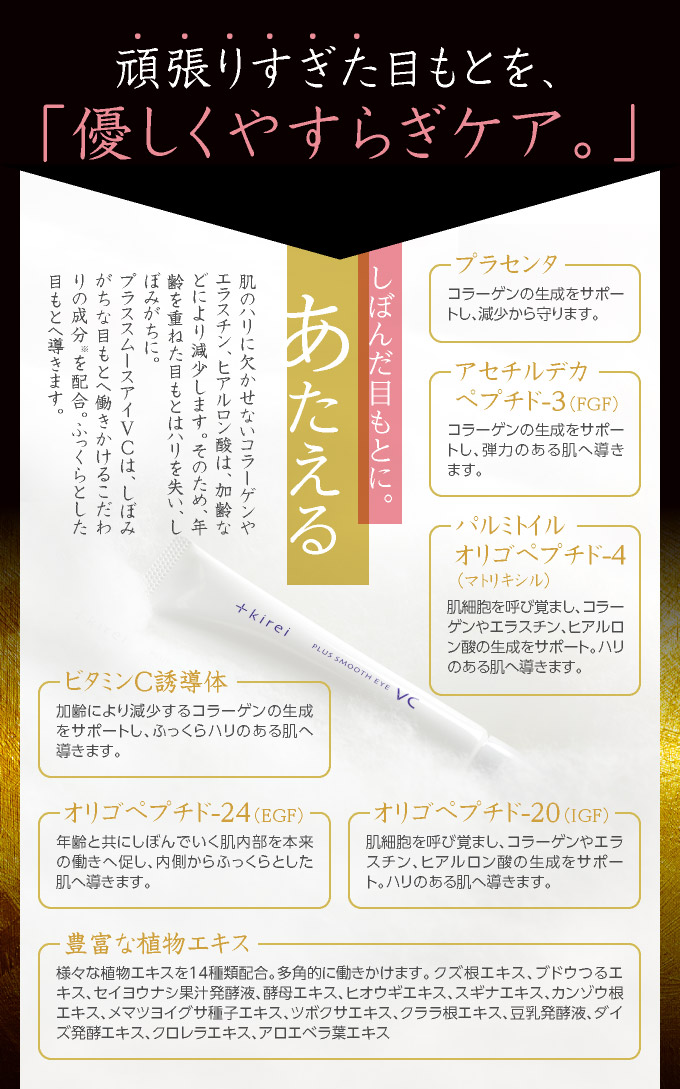 頑張りすぎた目もとを、
「優しくやすらぎケア。」
しぼんだ目もとに。
あたえる
肌のハリに欠かせないコラーゲンや
エラスチン、ヒアルロン酸は、加齢な
どにより減少します。そのため、年
齢を重ねた目もとはハリを失い、し
ぼみがちに。
プラススムースアイVCは、しぼみ
がちな目もとへ働きかけるこだわ
りの成分※を配合。ふっくらとした
目もとへ導きます。
プラセンタ
コラーゲンの生成をサポー
トし、減少から守ります。
アセチルデカ
ペプチド-3(FGF)
コラーゲンの生成をサポー
トし、弾力のある肌へ導き
ます。
パルミトイル
オリゴペプチド-4
(マトリキシル)
肌細胞を呼び覚まし、コラー
ゲンやエラスチン、ヒアルロ
ン酸の生成をサポート。ハリ
のある肌へ導きます。
+kirei
PLUS SMOOTH EYE VC
ビタミンC誘導体
加齢により減少するコラーゲンの生成
をサポートし、ふっくらハリのある肌へ
導きます。
オリゴペプチド-24(EGF)
年齢と共にしぼんでいく肌内部を本来
の働きへ促し、内側からふっくらとした
肌へ導きます。
オリゴペプチド-20(IGF)
肌細胞を呼び覚まし、コラーゲンやエラ
スチン、ヒアルロン酸の生成をサポー
ト。ハリのある肌へ導きます。
豊富な植物エキス
様々な植物エキスを14種類配合。多角的に働きかけます。クズ根エキス、ブドウつるエ
キス、セイヨウナシ果汁発酵液、酵母エキス、ヒオウギエキス、スギナエキス、カンゾウ根
エキス、メマツヨイグサ種子エキス、ツボクサエキス、クララ根エキス、豆乳発酵液、ダイ
ズ発酵エキス、クロレラエキス、アロエベラ葉エキス